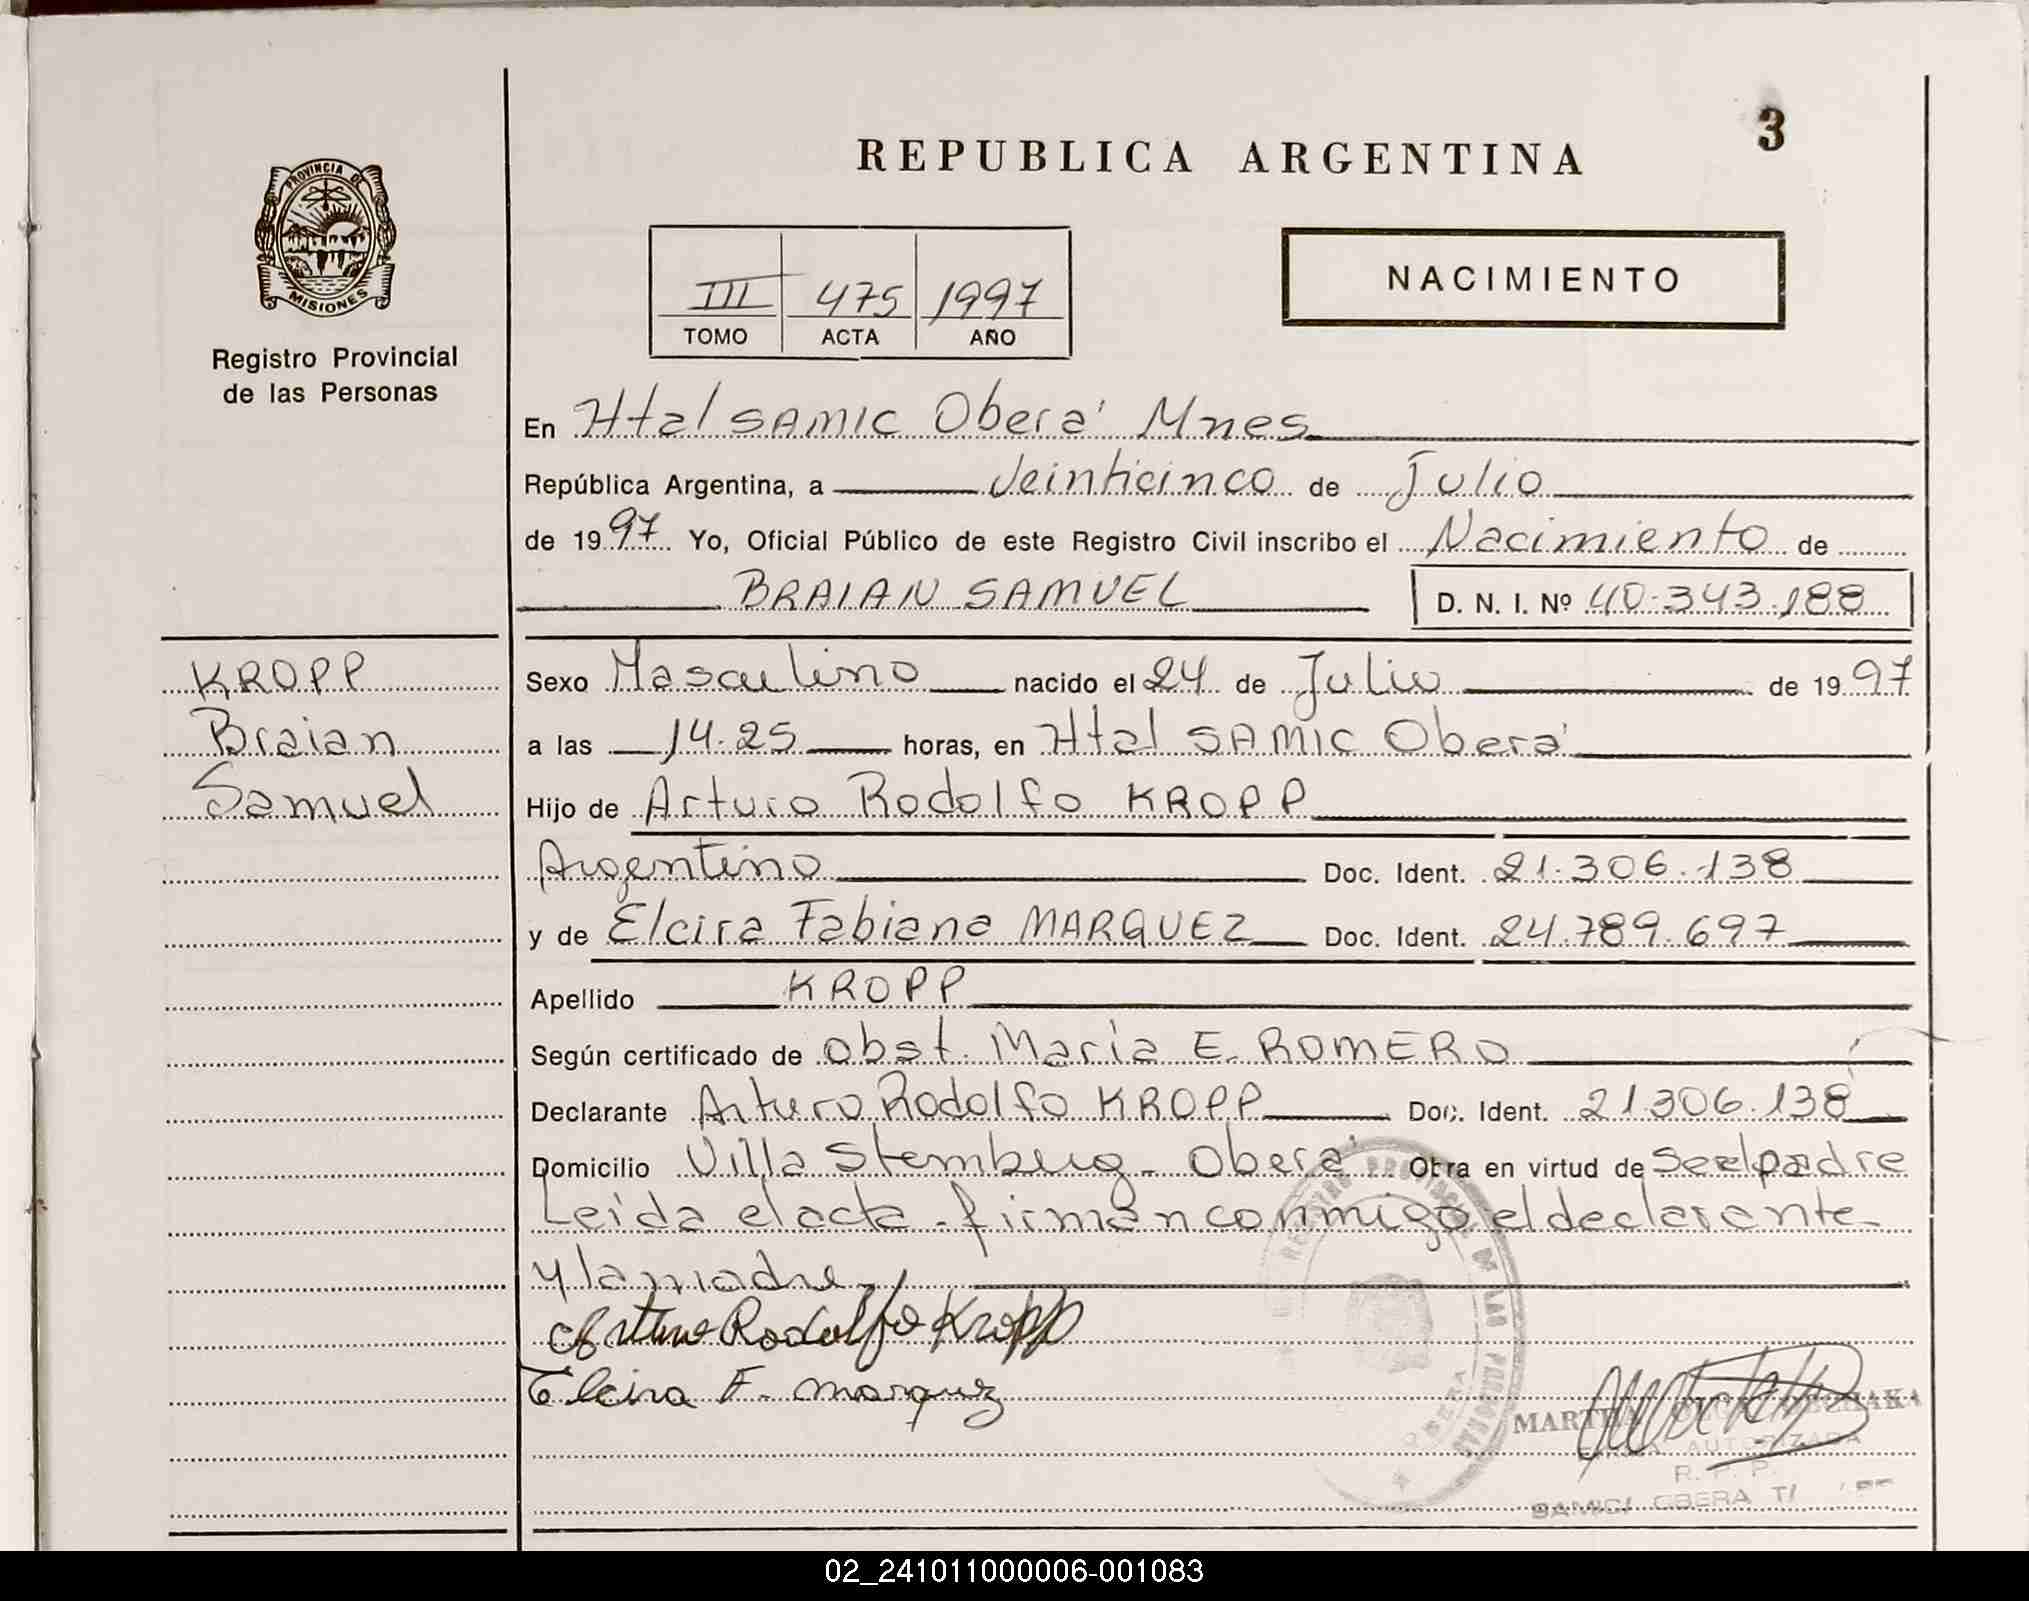 3
REPUBLICA ARGENTINA
PROVINCIA DE
MISIONES
Registro Provincial
de las Personas
III 475 1997
TOMO ACTA AÑO
NACIMIENTO
En Htal SAMIC Oberá Mnes
República Argentina, a Veinticinco de Julio
de 1997 Yo, Oficial Público de este Registro Civil inscribo el Nacimiento de
BRAIAN SAMUEL D. N. I. Nº 40.343.188
KROPP
Braian
Samuel
Sexo Masculino nacido el 24 de Julio de 1997
a las 14.25 horas, en Htal SAMIC Oberá
Hijo de Arturo Rodolfo KROPP
Argentino Doc. Ident. 21.306.138
y de Elcira Fabiana MARQUEZ Doc. Ident. 24.789.697
Apellido KROPP
Según certificado de obst. Maria E. ROMERO
Declarante Arturo Rodolfo KROPP Doc. Ident. 21.306.138
Domicilio Villa Stemberg - Oberá Obra en virtud de ser el padre
Leida el acta - firman conmigo el declarante
y la madre
Arturo Rodolfo Kropp
Elcira F. Marquez
REGISTRO PROVINCIAL DE LAS PERSONAS
MARTHA
AUTORIZADA
R. P. P.
SAMIC OBERA
02_241011000006-001083